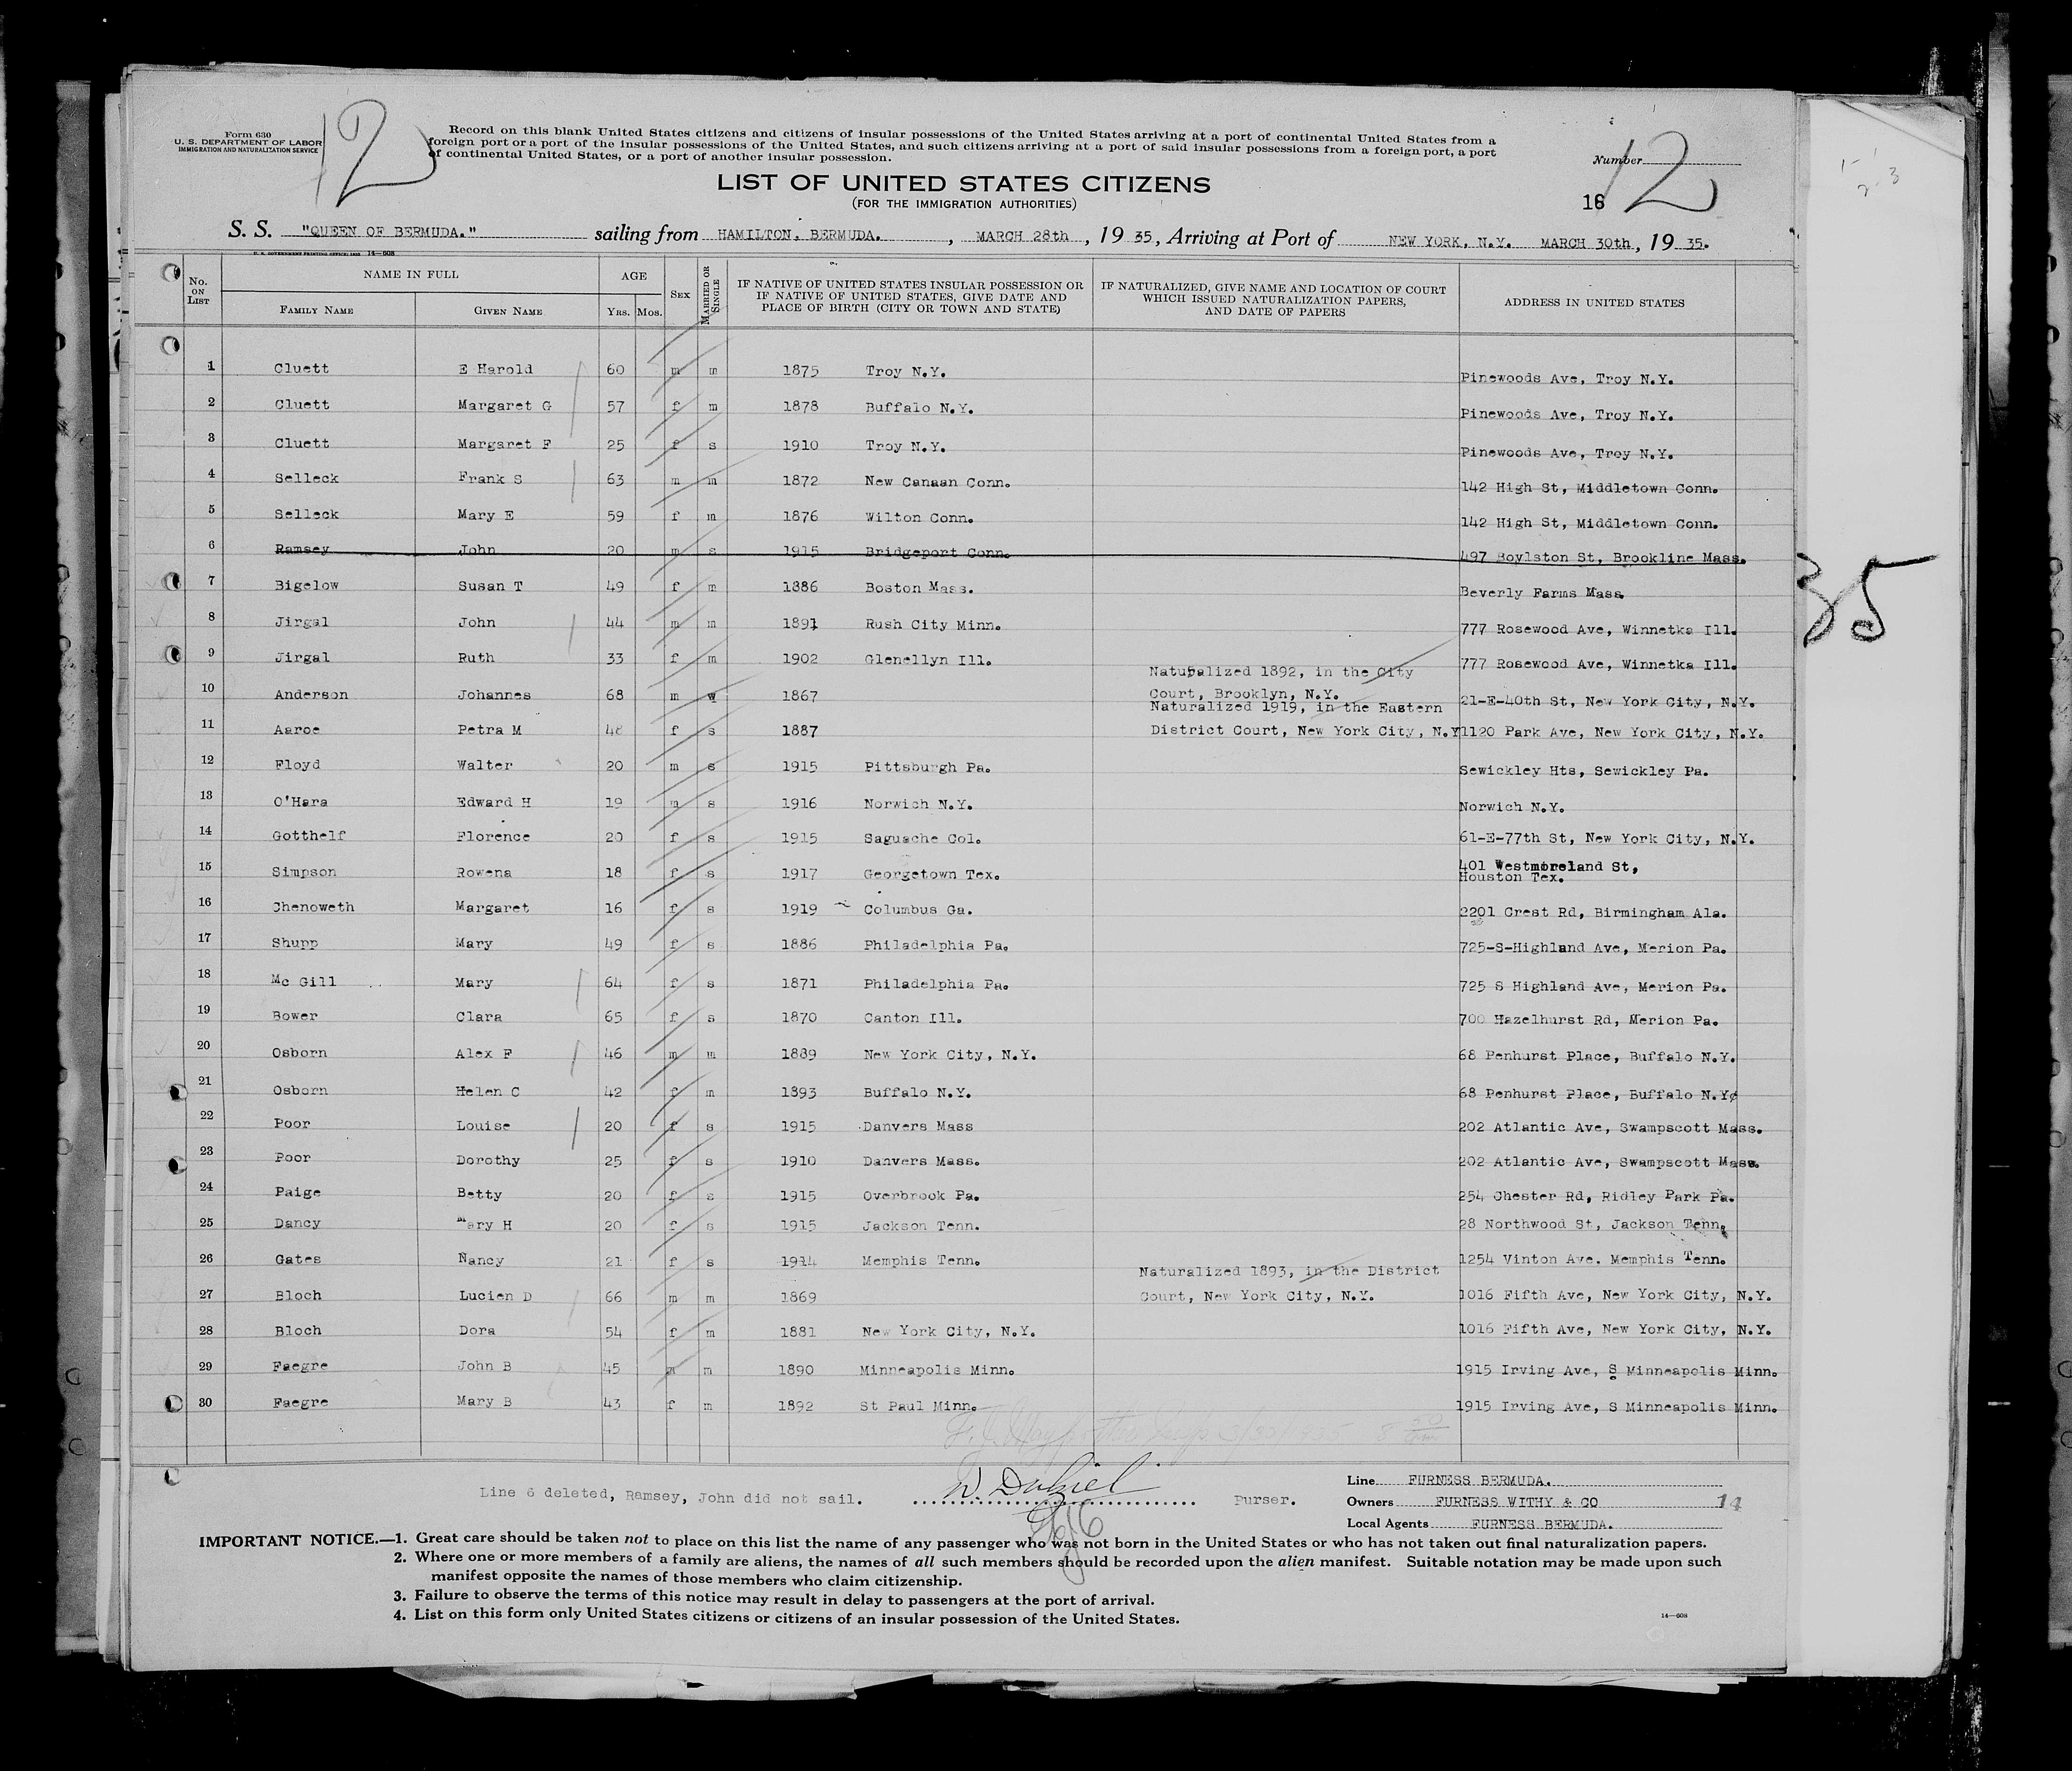 12
Form 630
U. S. DEPARTMENT OF LABOR
IMMIGRATION AND NATURALIZATION SERVICE
Record on this blank United States citizens and citizens of insular possessions of the United States arriving at a port of continental United States from a
foreign port or a port of the insular possessions of the United States, and such citizens arriving at a port of said insular possessions from a foreign port, a port
of continental United States, or a port of another insular possession.
Number 12
LIST OF UNITED STATES CITIZENS
(FOR THE IMMIGRATION AUTHORITIES)
16
S. S. "QUEEN OF BERMUDA." sailing from HAMILTON, BERMUDA. , MARCH 28th , 19 35, Arriving at Port of NEW YORK, N.Y. MARCH 30th, 19 35.
U. S. GOVERNMENT PRINTING OFFICE: 1933 14—608
No. ON LIST NAME IN FULL FAMILY NAME GIVEN NAME AGE YRS. MOS. SEX MARRIED OR SINGLE IF NATIVE OF UNITED STATES INSULAR POSSESSION OR IF NATIVE OF UNITED STATES, GIVE DATE AND PLACE OF BIRTH (CITY OR TOWN AND STATE) IF NATURALIZED, GIVE NAME AND LOCATION OF COURT WHICH ISSUED NATURALIZATION PAPERS, AND DATE OF PAPERS ADDRESS IN UNITED STATES
1 Cluett E Harold 60 m m 1875 Troy N.Y. Pinewoods Ave, Troy N.Y.
2 Cluett Margaret G 57 f m 1878 Buffalo N.Y. Pinewoods Ave, Troy N.Y.
3 Cluett Margaret F 25 f s 1910 Troy N.Y. Pinewoods Ave, Troy N.Y.
4 Selleck Frank S 63 m m 1872 New Canaan Conn. 142 High St, Middletown Conn.
5 Selleck Mary E 59 f m 1876 Wilton Conn. 142 High St, Middletown Conn.
6 Ramsey John 20 m s 1915 Bridgeport Conn. 497 Boylston St, Brookline Mass.
7 Bigelow Susan T 49 f m 1886 Boston Mass. Beverly Farms Mass
8 Jirgal John 44 m m 1891 Rush City Minn. 777 Rosewood Ave, Winnetka Ill.
9 Jirgal Ruth 33 f m 1902 Glenellyn Ill. 777 Rosewood Ave, Winnetka Ill.
Naturalized 1892, in the City
10 Anderson Johannes 68 m w 1867 Court, Brooklyn, N.Y. 21-E-40th St, New York City, N.Y.
Naturalized 1919, in the Eastern
11 Aaroe Petra M 48 f s 1887 District Court, New York City, N.Y 1120 Park Ave, New York City, N.Y.
12 Floyd Walter 20 m s 1915 Pittsburgh Pa. Sewickley Hts, Sewickley Pa.
13 O'Hara Edward H 19 m s 1916 Norwich N.Y. Norwich N.Y.
14 Gotthelf Florence 20 f s 1915 Saguache Col. 61-E-77th St, New York City, N.Y.
15 Simpson Rowena 18 f s 1917 Georgetown Tex. 401 Westmoreland St,
Houston Tex.
16 Chenoweth Margaret 16 f s 1919 Columbus Ga. 2201 Crest Rd, Birmingham Ala.
17 Shupp Mary 49 f s 1886 Philadelphia Pa. 725-S-Highland Ave, Merion Pa.
18 Mc Gill Mary 64 f s 1871 Philadelphia Pa. 725 S Highland Ave, Merion Pa.
19 Bower Clara 65 f s 1870 Canton Ill. 700 Hazelhurst Rd, Merion Pa.
20 Osborn Alex F 46 m m 1889 New York City, N.Y. 68 Penhurst Place, Buffalo N.Y.
21 Osborn Helen C 42 f m 1893 Buffalo N.Y. 68 Penhurst Place, Buffalo N.Y.
22 Poor Louise 20 f s 1915 Danvers Mass 202 Atlantic Ave, Swampscott Mass.
23 Poor Dorothy 25 f s 1910 Danvers Mass. 202 Atlantic Ave, Swampscott Mass.
24 Paige Betty 20 f s 1915 Overbrook Pa. 254 Chester Rd, Ridley Park Pa.
25 Dancy Mary H 20 f s 1915 Jackson Tenn. 28 Northwood St, Jackson Tenn.
26 Gates Nancy 21 f s 1914 Memphis Tenn. 1254 Vinton Ave. Memphis Tenn.
Naturalized 1893, in the District
27 Bloch Lucien D 66 m m 1869 Court, New York City, N.Y. 1016 Fifth Ave, New York City, N.Y.
28 Bloch Dora 54 f m 1881 New York City, N.Y. 1016 Fifth Ave, New York City, N.Y.
29 Faegre John B 45 m m 1890 Minneapolis Minn. 1915 Irving Ave, S Minneapolis Minn.
30 Faegre Mary B 43 f m 1892 St Paul Minn. 1915 Irving Ave, S Minneapolis Minn.
35
Line 6 deleted, Ramsey, John did not sail. Purser.
Line FURNESS BERMUDA.
Owners FURNESS WITHY & CO 14
Local Agents FURNESS BERMUDA.
IMPORTANT NOTICE.—1. Great care should be taken not to place on this list the name of any passenger who was not born in the United States or who has not taken out final naturalization papers.
2. Where one or more members of a family are aliens, the names of all such members should be recorded upon the alien manifest. Suitable notation may be made upon such
manifest opposite the names of those members who claim citizenship.
3. Failure to observe the terms of this notice may result in delay to passengers at the port of arrival.
4. List on this form only United States citizens or citizens of an insular possession of the United States.
14—608